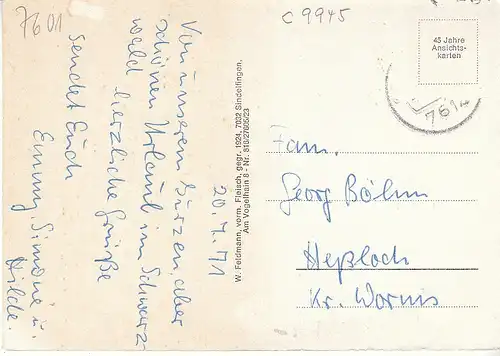 7601
C 9945
45 Jahre
Ansichts-
karten
761
20.7.71
Von unserem kurzen aber
schönen Urlaub im Schwarz-
wald herzliche Grüße
sendet Euch
Emmy, Simone u.
Hilde.
W. Feldmann, vorm. Fleisch, gegr. 1924, 7032 Sindelfingen,
Am Vogelhain 8 - Nr. 810/27605/23
Fam.
Georg Böhm
Heßloch
Kr. Worms